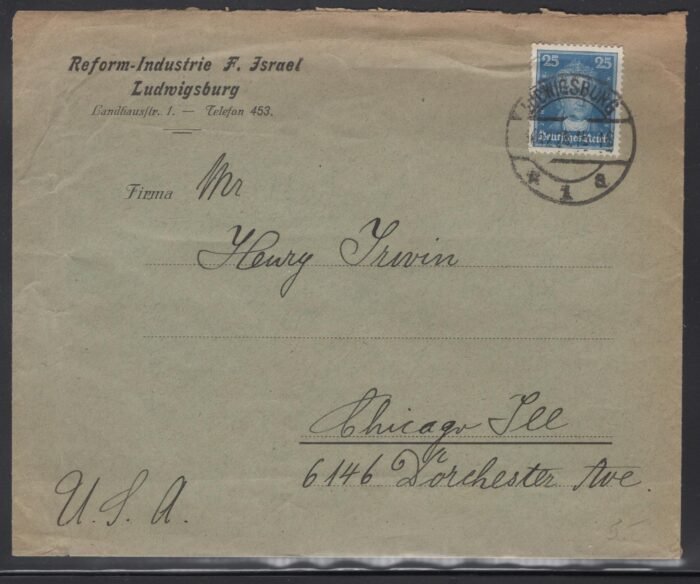 Reform-Industrie F. Israel
Ludwigsburg
Landhausstr. 1. — Telefon 453.
25 25
Deutsches Reich
LUDWIGSBURG
* 1 a
Firma Mr
Henry Irwin
Chicago Ill
6146 Dorchester Ave.
U.S.A.
3.-